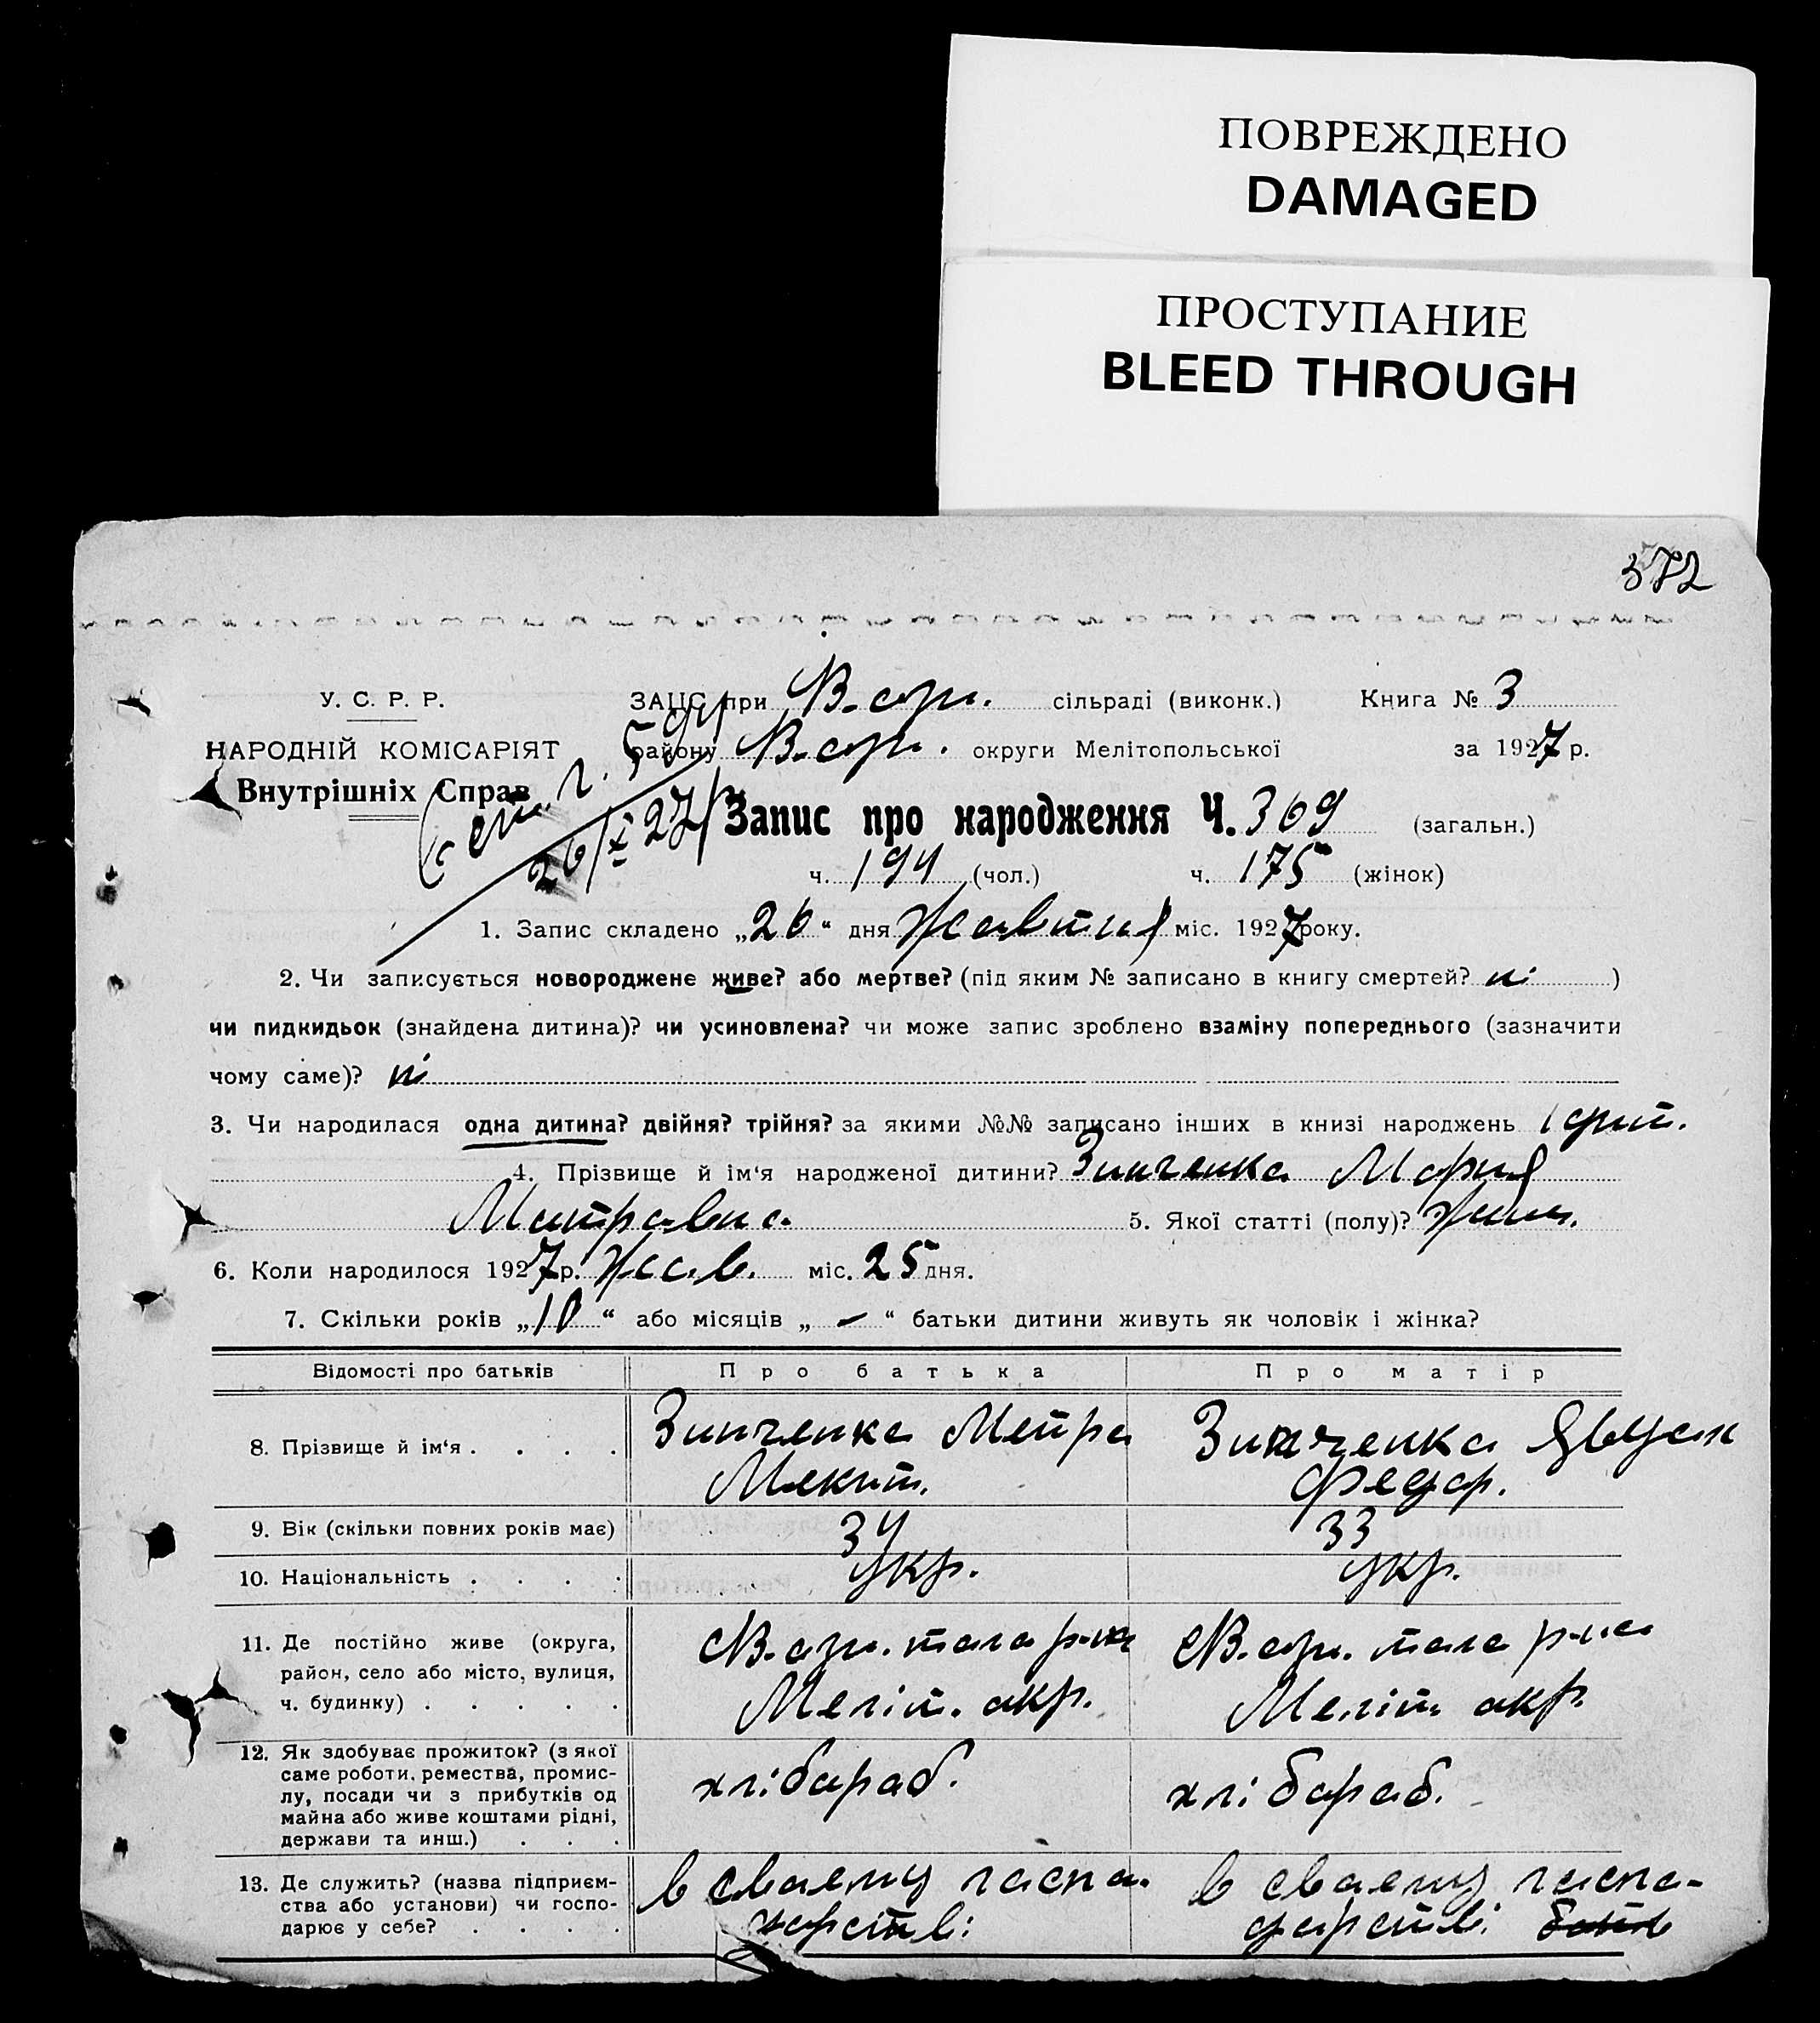 ПОВРЕЖДЕНО
DAMAGED
ПРОСТУПАНИЕ
BLEED THROUGH
372
У. С. Р. Р.
ЗАЦС при В-ори. сільраді (виконк.) Книга № 3
НАРОДНІЙ КОМІСАРІЯТ
району В-ори. округи Мелітопольської за 1927 р.
Внутрішніх Справ
26/X 27
Запис про народження Ч. 369 (загальн.)
ч. 194 (чол.) ч. 175 (жінок)
1. Запис складено „26“ дня Жавтня міс. 1927 року.
2. Чи записується новороджене живе? або мертве? (під яким № записано в книгу смертей? ні )
чи пидкидьок (знайдена дитина)? чи усиновлена? чи може запис зроблено взаміну попереднього (зазначити
чому саме)? ні
3. Чи народилася одна дитина? двійня? трійня? за якими №№ записано інших в книзі народжень 1 дит.
4. Прізвище й ім‘я народженої дитини? Зинченко Мария
Митровна. 5. Якої статті (полу)? Жин.
6. Коли народилося 1927 р. Жов. міс. 25 дня.
7. Скільки років „10“ або місяців „ – “ батьки дитини живуть як чоловік і жінка?
Відомості про батьків Про батька Про матір
8. Прізвище й ім‘я . . . . Зинченко Митро Зинченко Явдок
Микит. Федор.
9. Вік (скільки повних років має) 34 33
10. Національність . . . . укр. укр.
11. Де постійно живе (округа,
район, село або місто, вулиця,
ч. будинку) . . . . .
В-ори. тога р-на В-ори. тога р-на
Меліт. окр. Меліт. окр.
12. Як здобуває прожиток? (з якої
саме роботи, ремества, промис-
лу, посади чи з прибутків од
майна або живе коштами рідні,
держави та инш.) . . .
хлібороб. хлібороб.
13. Де служить? (назва підприєм-
ства або установи) чи госпо-
дарює у себе? . . . .
в своему госпо- в своему госпо-
дарстві дарстві